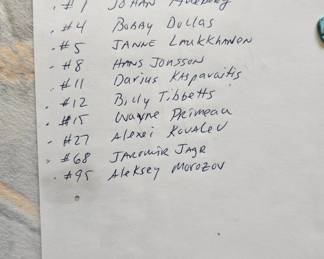 . #1 JOHAN Hedberg
. #4 Bobby Dollas
. #5 JANNE LAukkhANON
. #8 HANS JONSSON
. #11 Darius KASparaitis
. #12 Billy Tibbetts
. #15 Wayne Primeau
- #27 Alexei Kovalev
- #68 JAROMIR JAGR
. #95 Aleksey Morozov